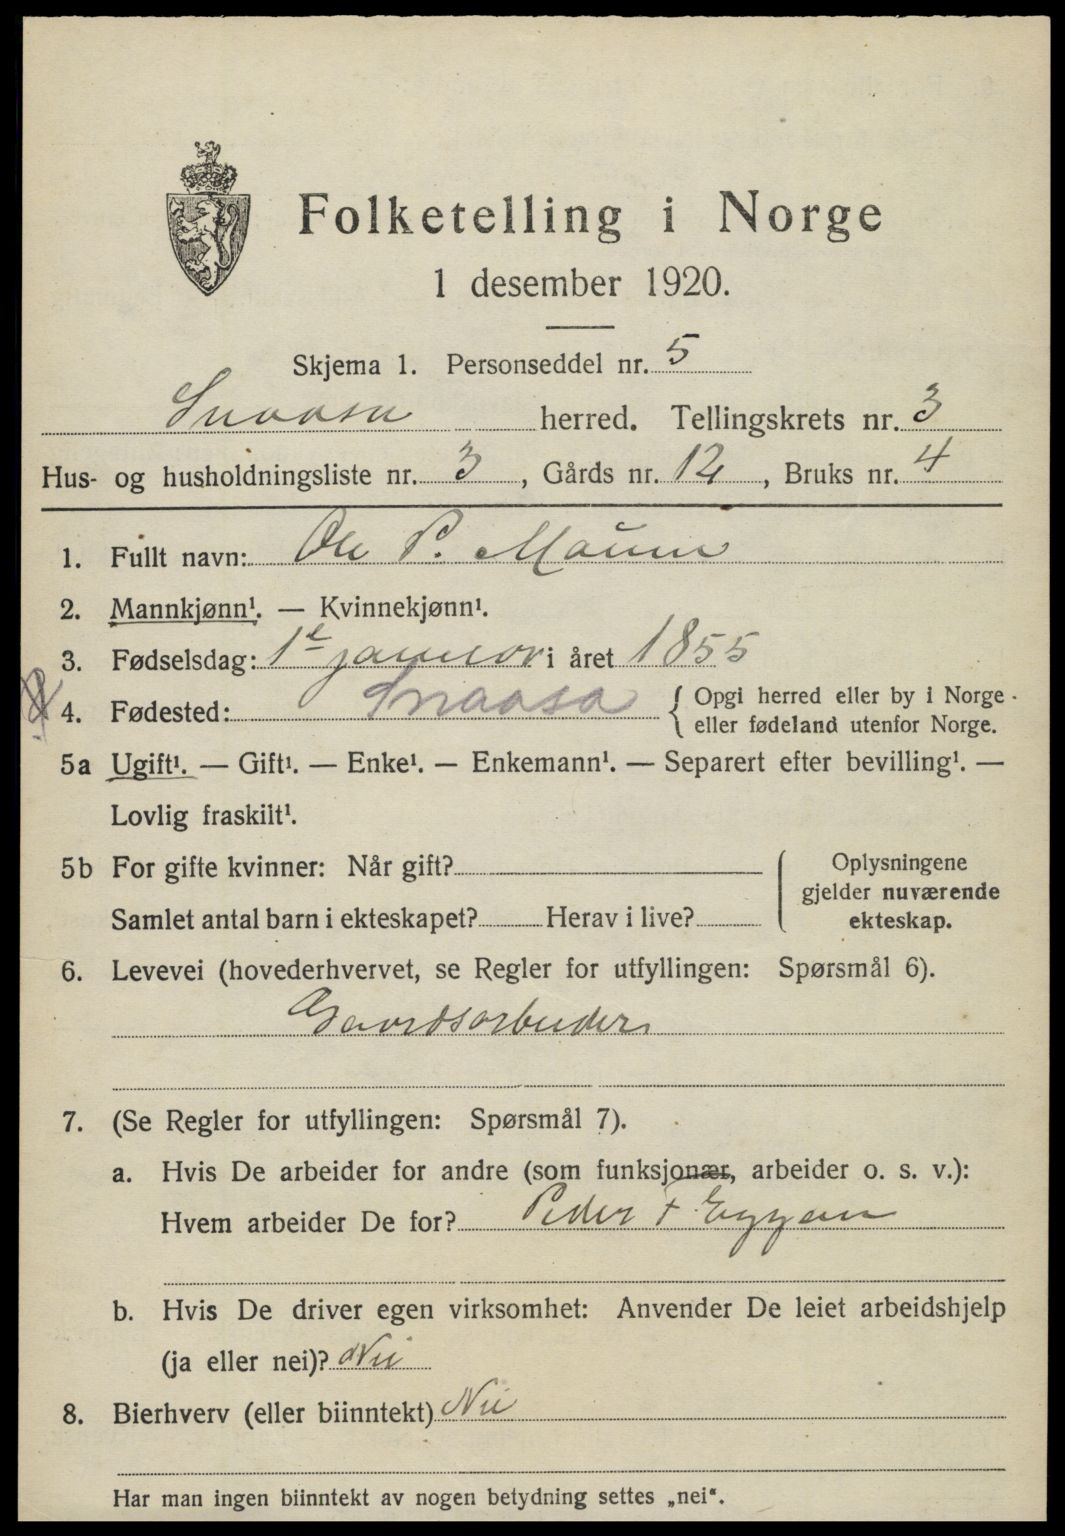 Folketelling i Norge
1 desember 1920.
Skjema 1. Personseddel nr. 5
Snaasa herred. Tellingskrets nr. 3
Hus- og husholdningsliste nr. 3, Gårds nr. 12, Bruks nr. 4
1. Fullt navn: Ole P. Maŭm
2. Mannkjønn¹. — Kvinnekjønn¹.
3. Fødselsdag: 1ᵗ januar i året 1855
4. Fødested: Snaasa { Opgi herred eller by i Norge
eller fødeland utenfor Norge.
5a Ugift¹. — Gift¹. — Enke¹. — Enkemann¹. — Separert efter bevilling¹. —
Lovlig fraskilt¹.
5b For gifte kvinner: Når gift?
Samlet antal barn i ekteskapet? Herav i live?
Oplysningene
gjelder nuværende
ekteskap.
6. Levevei (hovederhvervet, se Regler for utfyllingen: Spørsmål 6).
Gaardsarbeider
7. (Se Regler for utfyllingen: Spørsmål 7).
a. Hvis De arbeider for andre (som funksjonær, arbeider o. s. v.):
Hvem arbeider De for? Peder F. Eggan
b. Hvis De driver egen virksomhet: Anvender De leiet arbeidshjelp
(ja eller nei)? Nei
8. Bierhverv (eller biinntekt) Nei
Har man ingen biinntekt av nogen betydning settes „nei“.